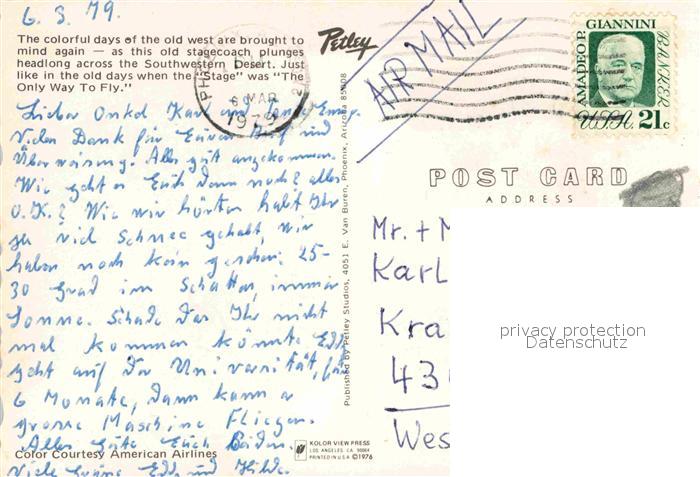 6. 3. 79.
The colorful days of the old west are brought to
mind again — as this old stagecoach plunges
headlong across the Southwestern Desert. Just
like in the old days when the "Stage" was "The
Only Way To Fly."
Lieber Onkel Karl und Tante Emmy.
Vielen Dank für Euren Brief und
Überweisung. Alles gut angekommen.
Wie geht es Euch dann noch? alles
O.K.? Wie wir hörten habt Ihr
so viel Schnee gehabt, wir
haben noch kein gesehen. 25-
30 Grad im Schatten, immer
Sonne. Schade das Ihr nicht
mal kommen könnte. Edd
geht auf der Universität, für
6 Monate, dann kann er
grosse Maschine Fliegen.
Alles Gute Euch Beiden.
Viele Grüsse Edd. und Hilde.
Color Courtesy American Airlines
Petley
Published by Petley Studios, 4051 E. Van Buren, Phoenix, Arizona 85008
KOLOR VIEW PRESS
LOS ANGELES, CA. 90064
PRINTED IN U.S.A. ©1976
AIR MAIL
MAR
1979
AMADEO P. GIANNINI
BANKER
USA 21c
POST CARD
ADDRESS
Mr. + M
Karl
Kra
43
Wes
privacy protection
Datenschutz